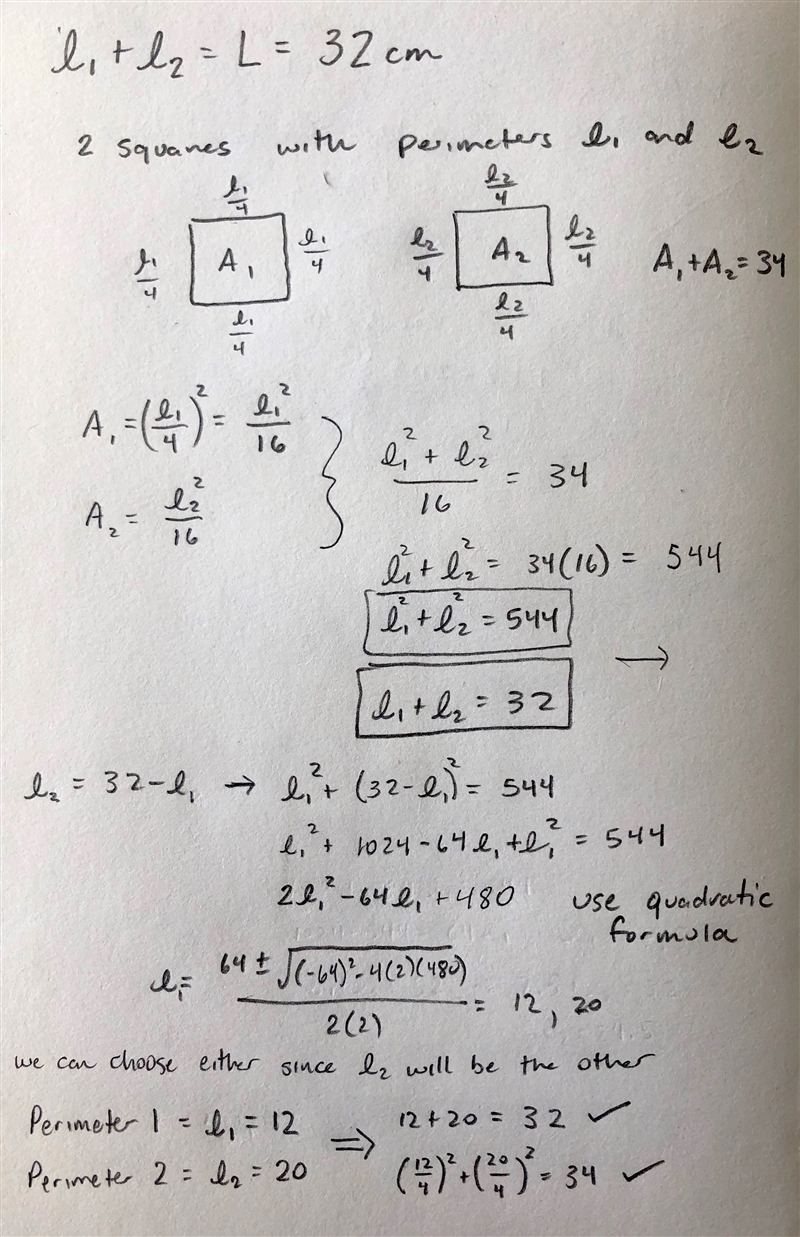 l₁ + l₂ = L = 32 cm
2 squares with perimeters l₁ and l₂
l₁/4 l₂/4
l₁/4 A₁ l₁/4 l₂/4 A₂ l₂/4 A₁+A₂=34
l₁/4 l₂/4
A₁ = (l₁/4)² = l₁²/16
A₂ = l₂²/16
} (l₁² + l₂²)/16 = 34
l₁² + l₂² = 34(16) = 544
l₁² + l₂² = 544
→
l₁ + l₂ = 32
l₂ = 32-l₁ → l₁² + (32-l₁)² = 544
l₁² + 1024-64l₁+l₁² = 544
2l₁²-64l₁+480 use quadratic
formula
l₁= (64 ± √((-64)²-4(2)(480)))/(2(2)) = 12, 20
we can choose either since l₂ will be the other
Perimeter 1 = l₁ = 12 ⇒ 12+20 = 32 ✓
Perimeter 2 = l₂ = 20 (12/4)²+(20/4)² = 34 ✓